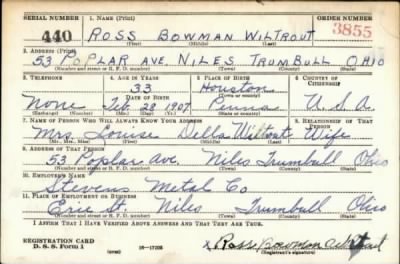 SERIAL NUMBER 1. NAME (Print) ORDER NUMBER
440 ROSS BOWMAN WILTROUT 3855
(First) (Middle) (Last)
2. ADDRESS (Print)
53 POPLAR AVE. NILES TRUMBULL OHIO
(Number and street or R. F. D. number) (Town) (County) (State)
3. TELEPHONE 4. AGE IN YEARS 5. PLACE OF BIRTH 6. COUNTRY OF CITIZENSHIP
33 Houston
DATE OF BIRTH (Town or county)
None Feb 28 1907 Penna U.S.A.
(Exchange) (Number) (Mo.) (Day) (Yr.) (State or country)
7. NAME OF PERSON WHO WILL ALWAYS KNOW YOUR ADDRESS 8. RELATIONSHIP OF THAT PERSON
Mrs. Louise Della Wiltrout Wife
(Mr., Mrs., Miss) (First) (Middle) (Last)
9. ADDRESS OF THAT PERSON
53 Poplar Ave. Niles Trumbull Ohio
(Number and street or R. F. D. number) (Town) (County) (State)
10. EMPLOYER'S NAME
Stevens Metal Co
11. PLACE OF EMPLOYMENT OR BUSINESS
Erie St. Niles Trumbull Ohio
(Number and street or R. F. D. number) (Town) (County) (State)
I AFFIRM THAT I HAVE VERIFIED ABOVE ANSWERS AND THAT THEY ARE TRUE.
REGISTRATION CARD
D. S. S. Form 1 16—17105 x Ross Bowman Wiltrout
(Registrant's signature)